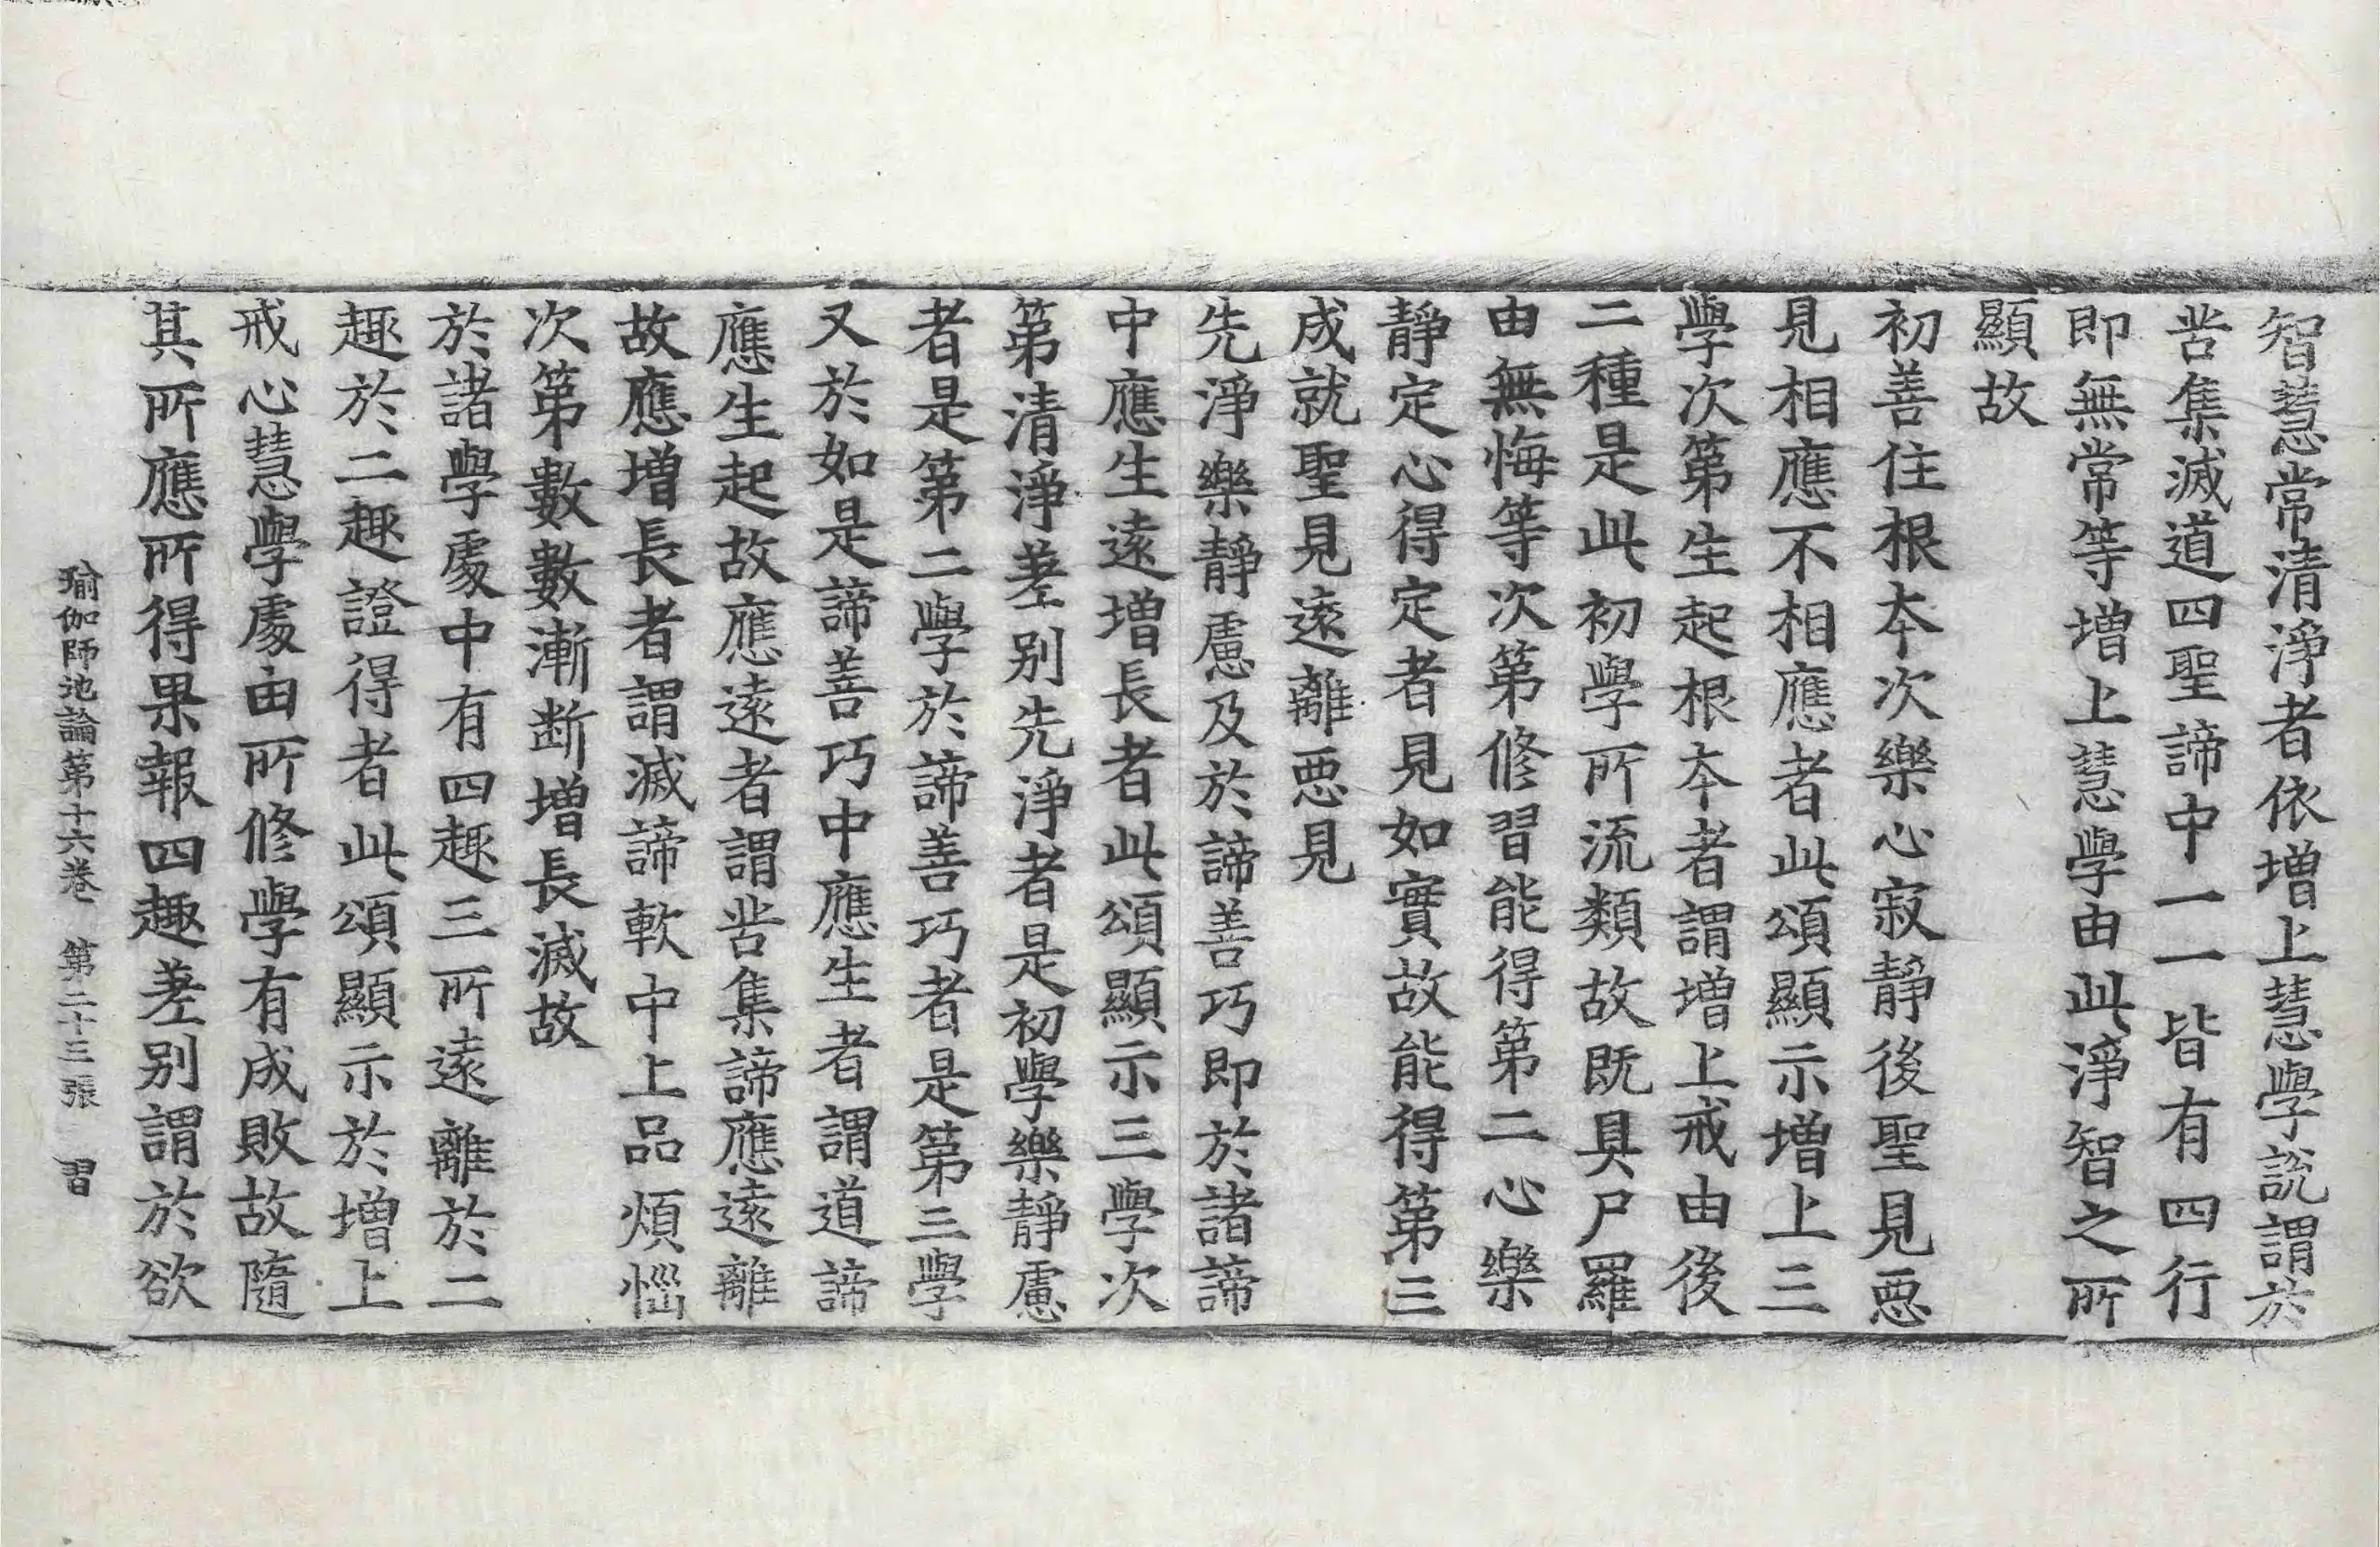 智慧常清淨者依增上慧學說謂於
苦集滅道四聖諦中一一皆有四行
即無常等增上慧學由此淨智之所
顯故
初善住根本次樂心寂靜後聖見惡
見相應不相應者此頌顯示增上三
學次第生起根本者謂增上戒由後
二種是此初學所流類故既具尸羅
由無悔等次第修習能得第二心樂
靜定心得定者見如實故能得第三
成就聖見遠離惡見
先淨樂靜慮及於諦善巧即於諸諦
中應生遠增長者此頌顯示三學次
第清淨差別先淨者是初學樂靜慮
者是第二學於諦善巧者是第三學
又於如是諦善巧中應生者謂道諦
應生起故應遠者謂苦集諦應遠離
故應增長者謂滅諦軟中上品煩惱
次第數數漸断增長滅故
於諸學處中有四趣三所遠離於二
趣於二趣證得者此頌顯示於增上
戒心慧學處由所修學有成敗故隨
其所應所得果報四趣差別謂於欲
瑜伽師地論第十六卷 第二十三張 習